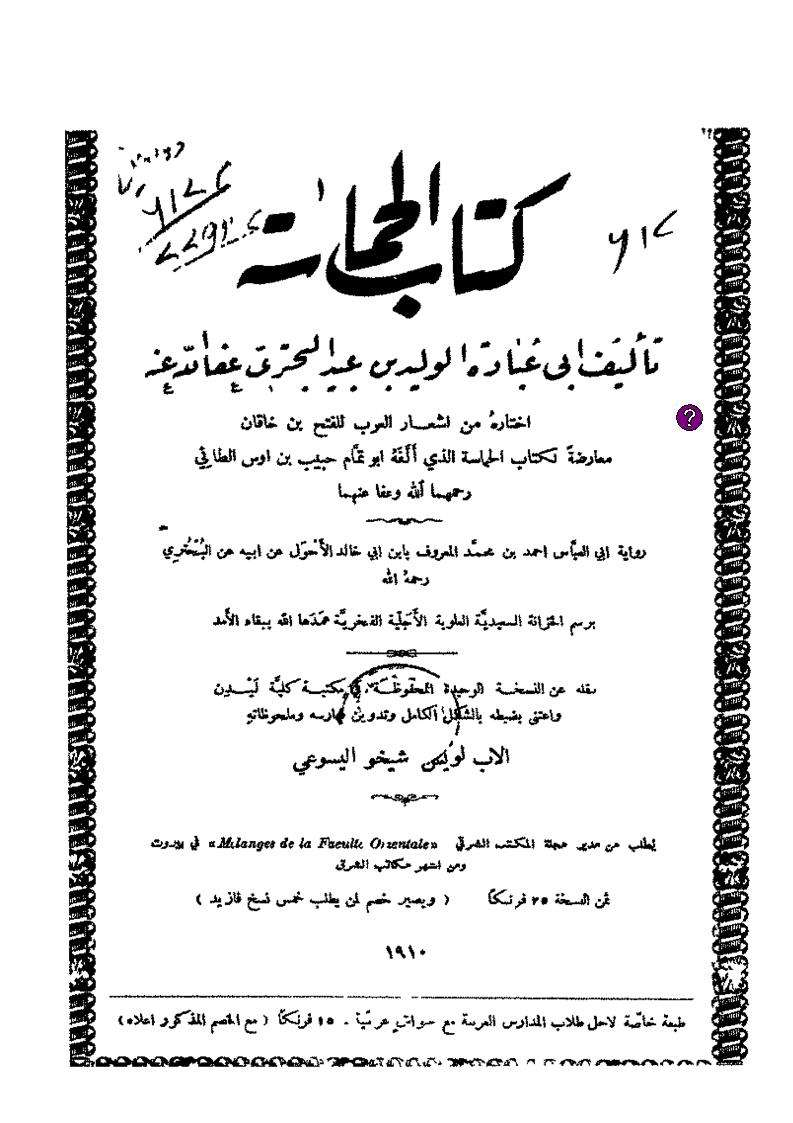 كتاب الحماسة
تأليف ابي عبادة الوليد بن عبيد البحتري عفا الله عنه
اختارهُ من اشعار العرب للفتح بن خاقان
معارضةً لكتاب الحماسة الذي ألَّفهُ ابو تمَّام حبيب بن اوس الطائي
رحمهما الله وعفا عنهما
رواية ابي العبَّاس احمد بن محمَّد المعروف بابن ابي خالد الأَحْوَل عن ابيه عن البُحْتُري
رحمهُ الله
برسم الخزانة السعيديَّة العلوية الأَجَلّية الفخريَّة عمَّدها الله ببقاء الأمد
نقله عن النسخة الوحيدة المحفوظة في مكتبة كليَّة لَيْدِن
واعتنى بضبطه بالشكل الكامل وتدوين فهارسه وملحوظاته
الاب لويس شيخو اليسوعي
يُطلب من مدير مجلة المكتب الشرقي «Mélanges de la Faculté Orientale» في بيروت
ومن اشهر مكاتب الشرق
ثمن النسخة ٢٥ فرنكًا ( ويصير خصم لمن يطلب خمس نسخ فأزيد )
١٩١٠
طبعة خاصَّة لاجل طلاب المدارس العربية مع حواشٍ عربيَّة . ١٥ فرنكًا ( مع الخصم المذكور اعلاه )